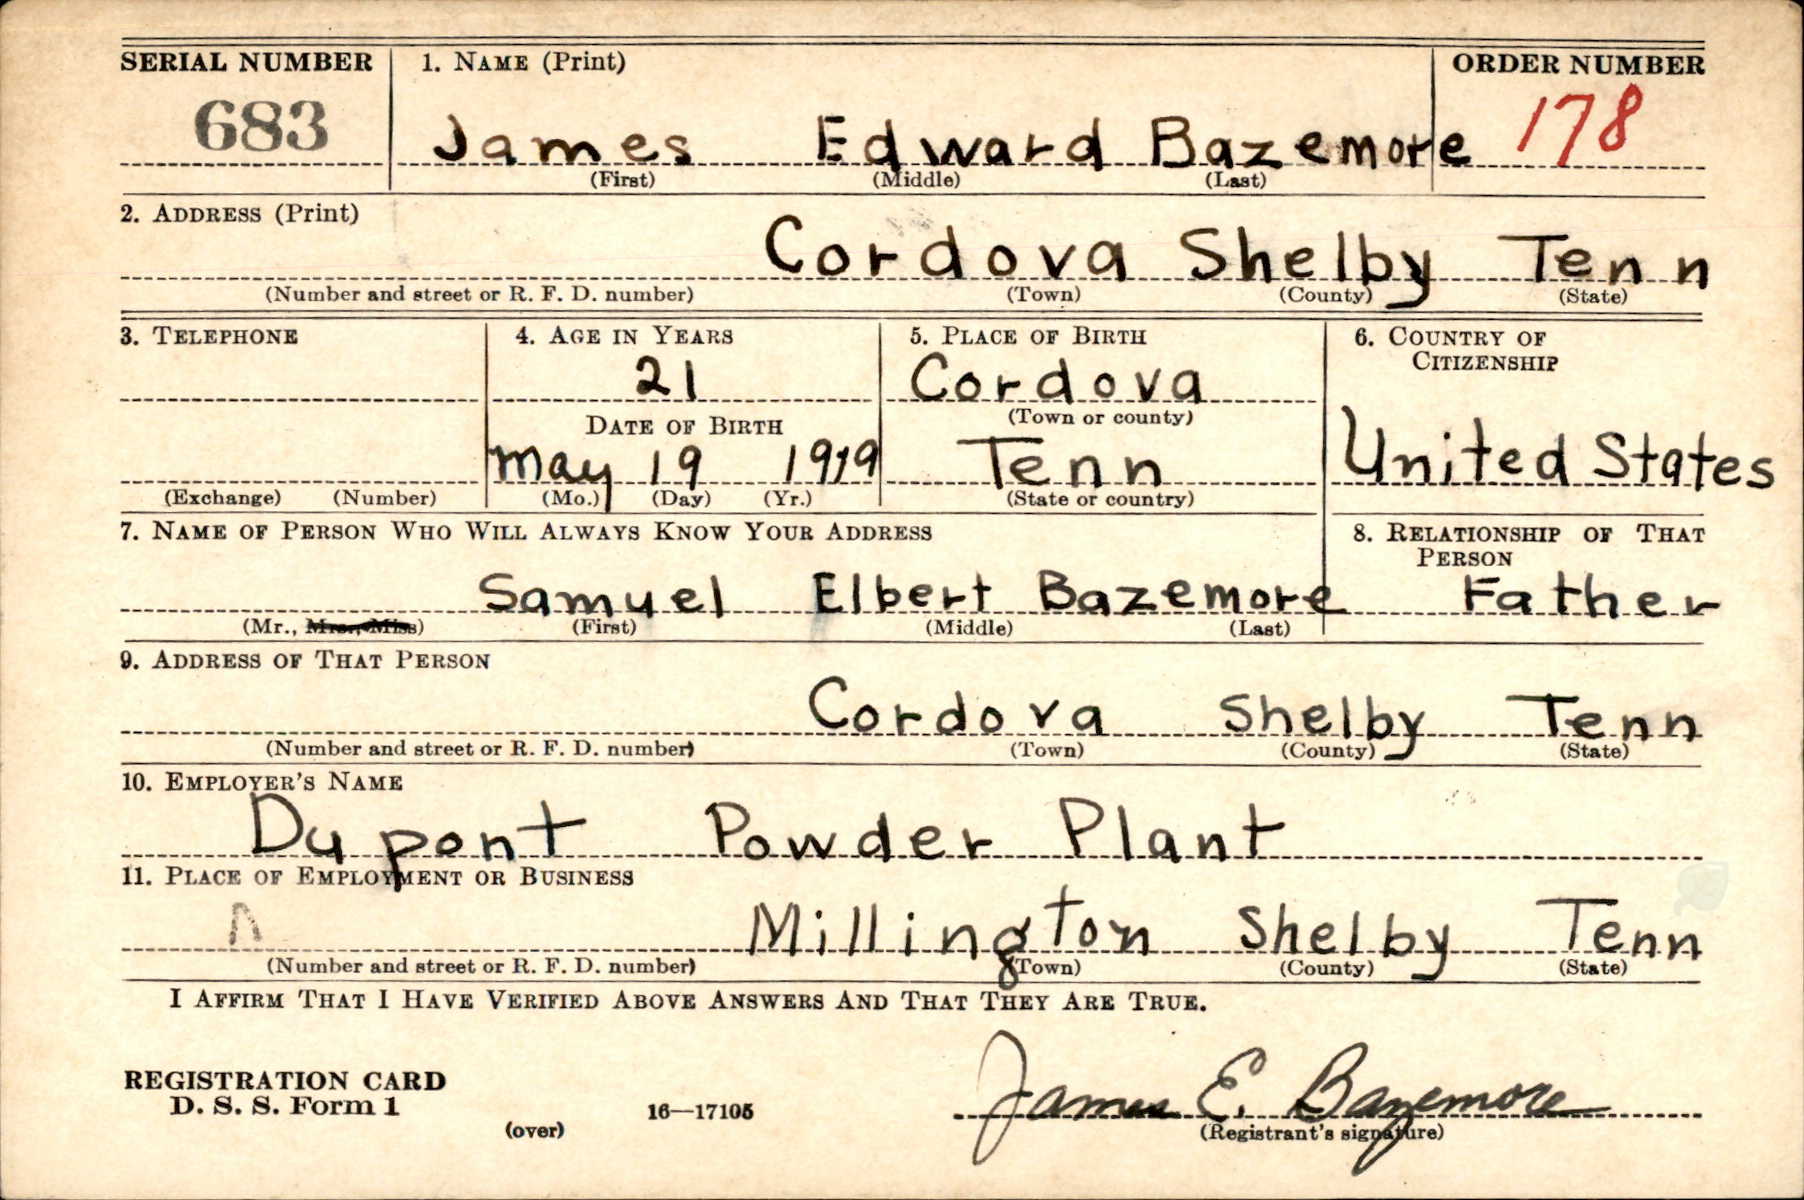 SERIAL NUMBER 1. NAME (Print) ORDER NUMBER
683 James Edward Bazemore 178
(First) (Middle) (Last)
2. ADDRESS (Print)
Cordova Shelby Tenn
(Number and street or R. F. D. number) (Town) (County) (State)
3. TELEPHONE 4. AGE IN YEARS 5. PLACE OF BIRTH 6. COUNTRY OF
CITIZENSHIP
21 Cordova
(Town or county)
DATE OF BIRTH
May 19 1919 Tenn United States
(Exchange) (Number) (Mo.) (Day) (Yr.) (State or country)
7. NAME OF PERSON WHO WILL ALWAYS KNOW YOUR ADDRESS 8. RELATIONSHIP OF THAT
PERSON
Samuel Elbert Bazemore Father
(Mr., Mrs., Miss) (First) (Middle) (Last)
9. ADDRESS OF THAT PERSON
Cordova Shelby Tenn
(Number and street or R. F. D. number) (Town) (County) (State)
10. EMPLOYER'S NAME
Dupont Powder Plant
11. PLACE OF EMPLOYMENT OR BUSINESS
Millington Shelby Tenn
(Number and street or R. F. D. number) (Town) (County) (State)
I AFFIRM THAT I HAVE VERIFIED ABOVE ANSWERS AND THAT THEY ARE TRUE.
REGISTRATION CARD
D. S. S. Form 1
(over) 16—17105
James E. Bazemore
(Registrant's signature)